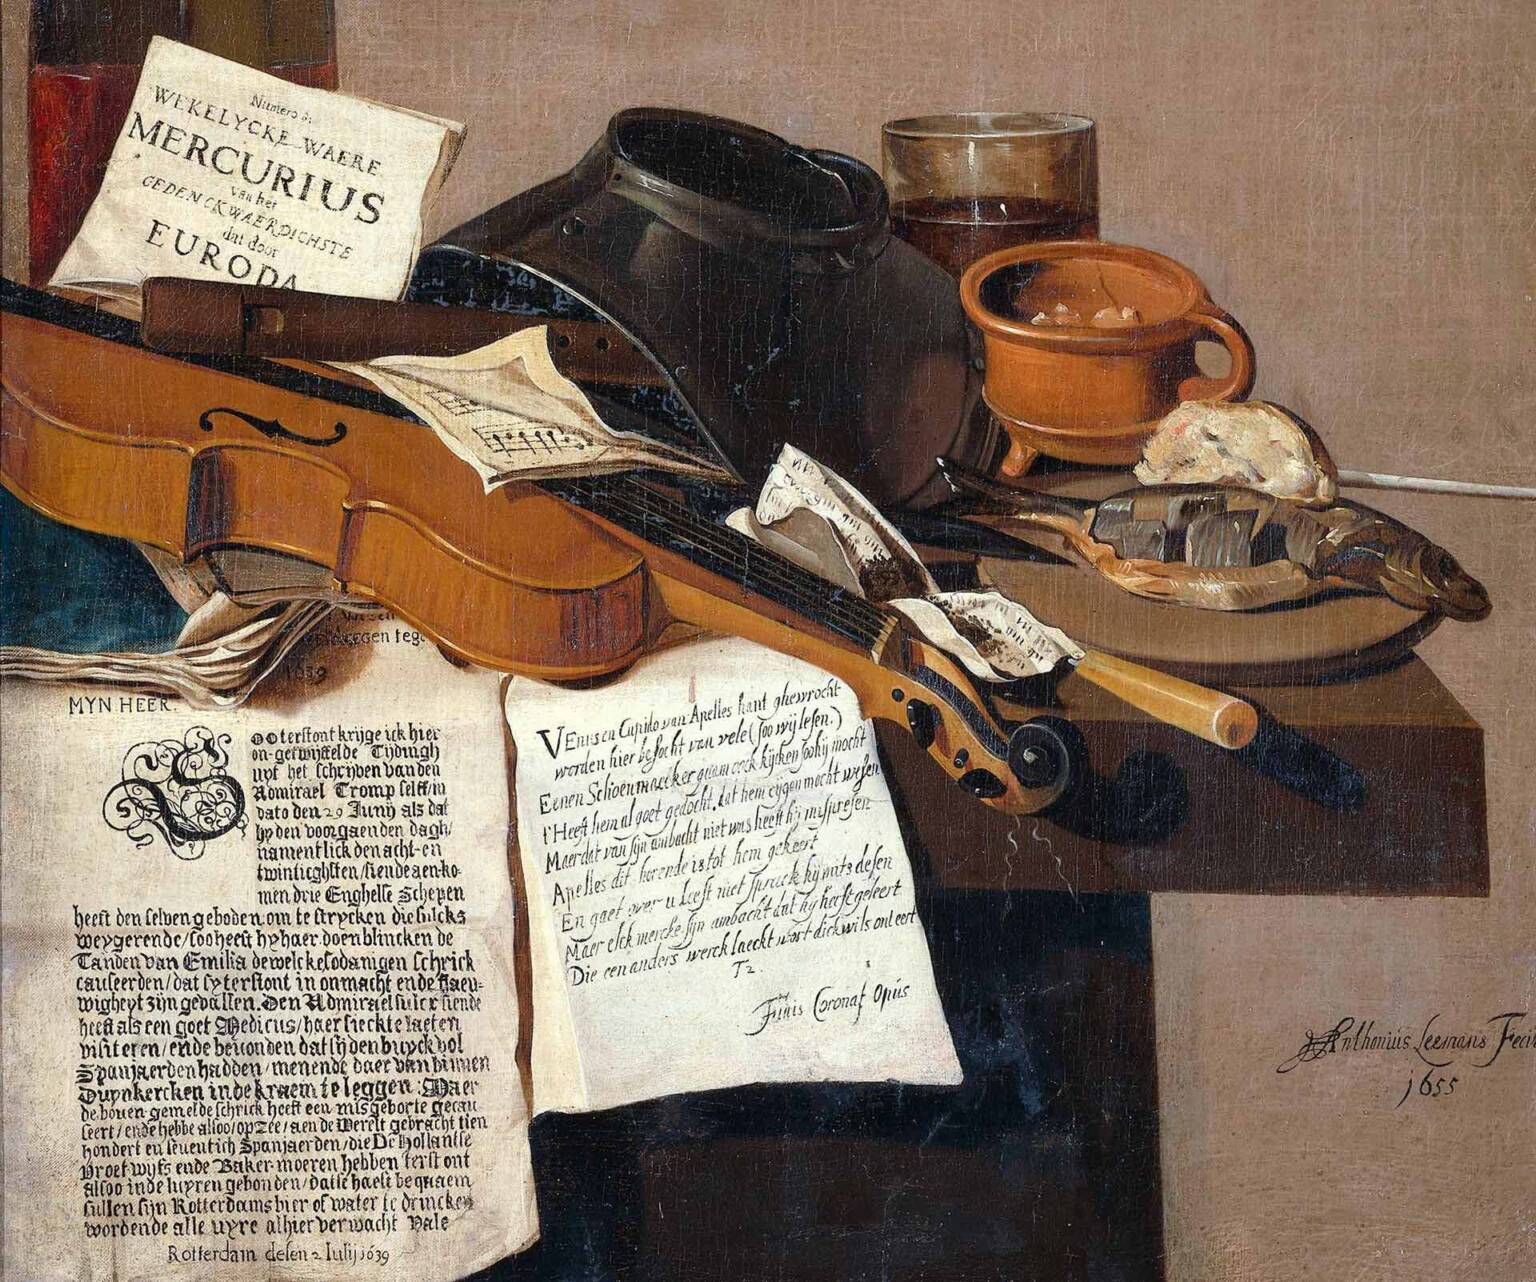 Numero
WEKELYCKE WAERE
MERCURIUS
van het
GEDENCKWAERDICHSTE
dat door
EUROPA
tege
1639
MYN HEER.
terstont krijge ick hier
on-getwijffelde Tijdingh
uyt het schrijven van den
Admirael Tromp selff in
dato den 29 Junij als dat
hy den voorgaenden dagh/
namentlick den acht-en
twintichsten/siende aen-ko-
men drie Enghelse Schepen
heeft den selven geboden om te strycken die sulcks
weygerende/soo heeft hy haer doen blincken de
Tanden van Emilia dewelcke sodanigen schrick
causeerden/dat sy terstont in onmacht ende flaeu-
wigheyt zijn gevallen. Den Admirael sulcx siende
heeft als een goet Medicus/haer sieckte laeten
visiteren/ende bevonden dat sij den buyck vol
Spanjaerden hadden/menende daer van binnen
Duynkercken in de kraem te leggen: Maer
de boven gemelde schrick heeft een misgeborte gecau
seert/ende hebbe alsoo/op Zee/aen de Werelt gebracht tien
hondert en seventich Spanjaerden/die De Hollantse
Vroet wijfs ende Baker moeren hebben terstont
alsoo in de luyren gebonden/dat se haest bequaem
sullen sijn Rotterdams bier of water te drincken
wordende alle uyre alhier verwacht Vale
Rotterdam desen 2 Iulij 1639
VEnus en Cupido van Apelles hant ghewrocht
worden hier besocht van vele (soo wij lesen.)
Eenen Schoenmaecker quam oock kijcken soo hij mocht
t'Heeft hem al goet gedocht, dat hem eygen mocht wesen
Maer dat van sijn ambacht niet was heeft hij mispresen
Apelles dit horende is tot hem gekeert
En gaet over u Leest niet sprack hij mits desen
Maer elck mercke sijn ambacht dat hy heeft geleert
Die een anders werck laeckt wort dickwils onteert
T2.
Finis Coronat Opus
Anthonius Leemans Fecit
1655